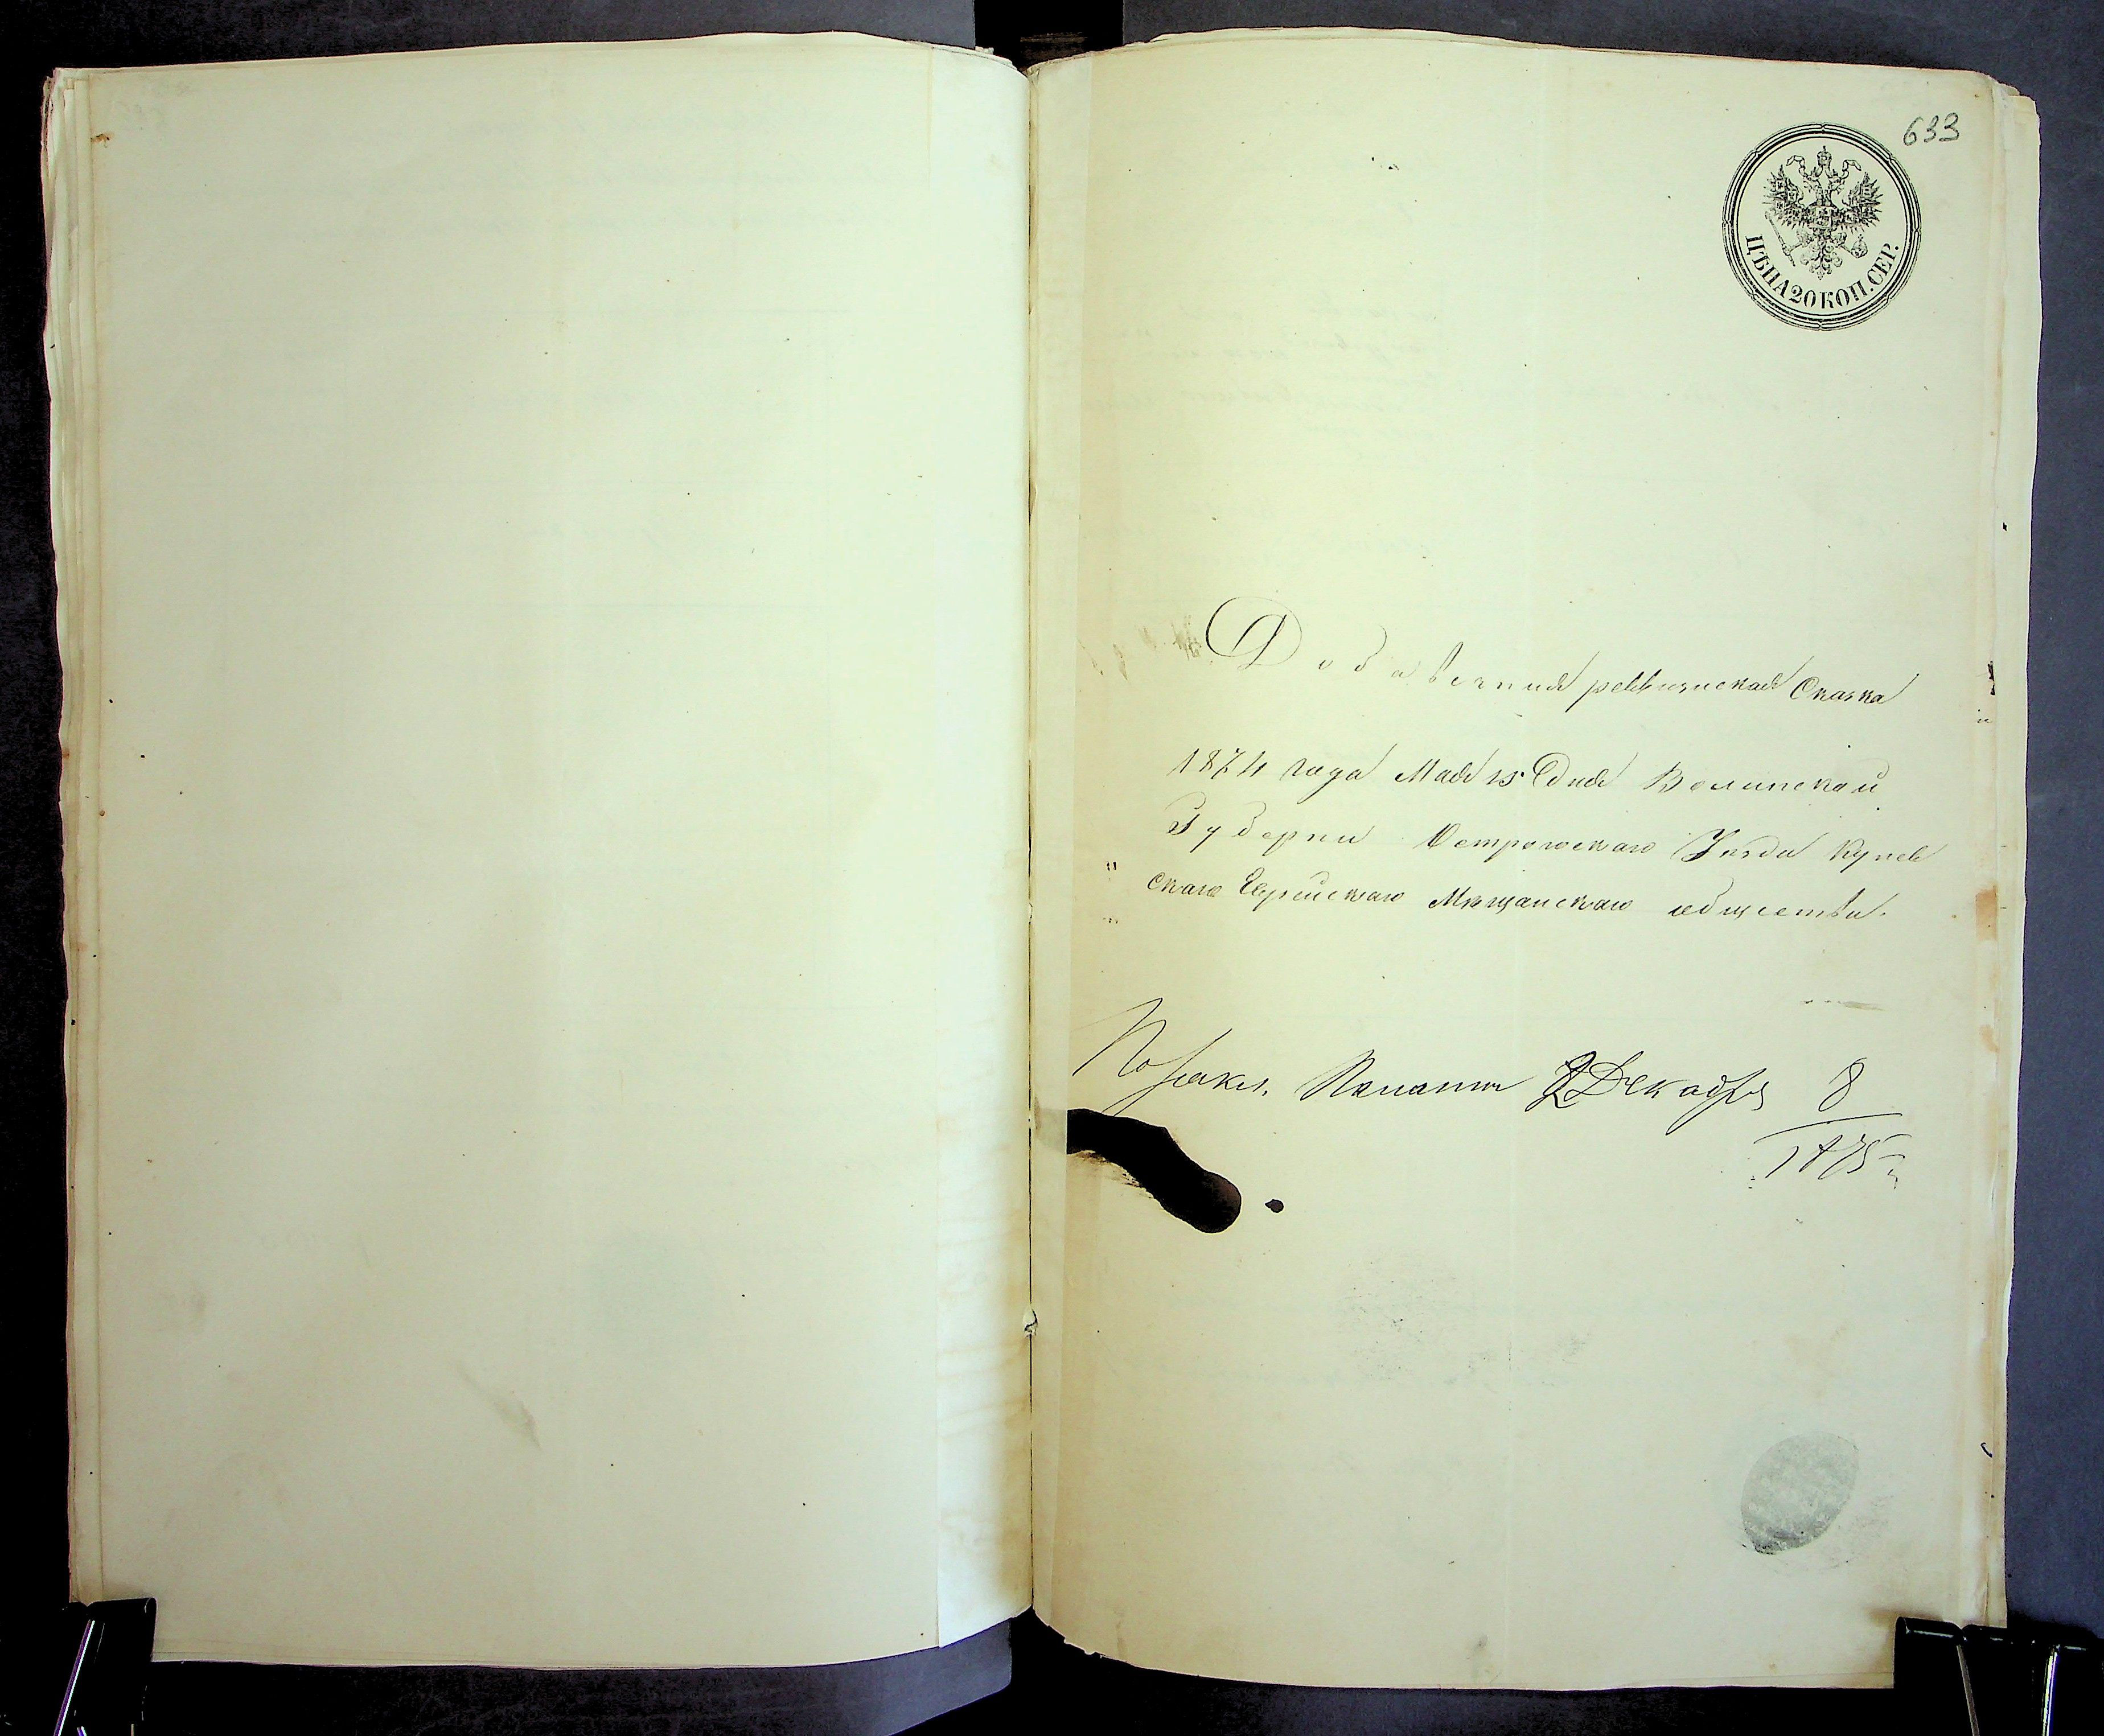 633
ЦѢНА 20 КОП. СЕР.
Добавочная ревизиская Сказка
1874 года Мая 15 Дня Волинской
Губерни Острогскаго Уѣзда Купев
скаго Еврейскаго Мѣщанскаго общества.
Декабря 8
1875